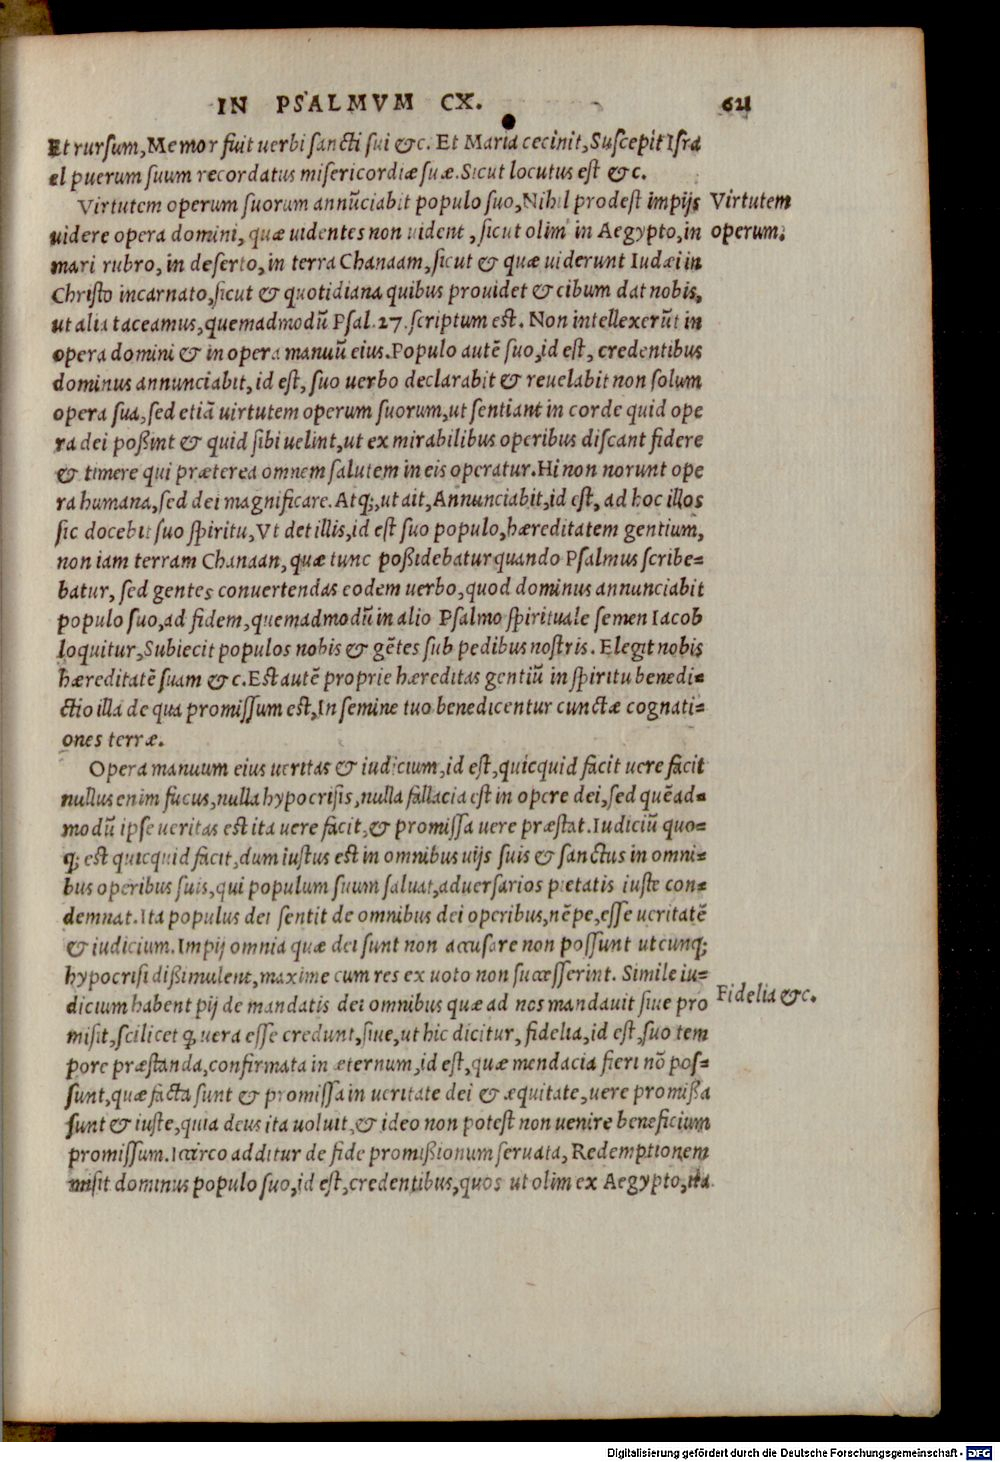 IN PSALMVM CX. 611
Et rursum, Memor fuit uerbi sancti sui &c. Et Maria cecinit, Suscepit Isra
el puerum suum recordatus misericordiæ suæ. Sicut locutus est &c.
Virtutem operum suorum annũciabit populo suo, Nihil prodest impijs
Virtutem
uidere opera domini, quæ uidentes non uident, sicut olim in Aegypto, in
operum.
mari rubro, in deserto, in terra Chanaam, sicut & quæ uiderunt Iudæi in
Christo incarnato, sicut & quotidiana quibus prouidet & cibum dat nobis,
ut alia taceamus, quemadmodũ Psal. 27. scriptum est. Non intellexerũt in
opera domini & in opera manuũ eius. Populo autẽ suo, id est, credentibus
dominus annunciabit, id est, suo uerbo declarabit & reuelabit non solum
opera sua, sed etiã uirtutem operum suorum, ut sentiant in corde quid ope
ra dei poßint & quid sibi uelint, ut ex mirabilibus operibus discant fidere
& timere qui præterea omnem salutem in eis operatur. Hi non norunt ope
ra humana, sed dei magnificare. Atq;, ut ait, Annunciabit, id est, ad hoc illos
sic docebit suo spiritu, Vt det illis, id est suo populo, hæreditatem gentium,
non iam terram Chanaan, quæ tunc poßidebatur quando Psalmus scribe=
batur, sed gentes conuertendas eodem uerbo, quod dominus annunciabit
populo suo, ad fidem, quemadmodũ in alio Psalmo spirituale semen Iacob
loquitur, Subiecit populos nobis & gẽtes sub pedibus nostris. Elegit nobis
hæreditatẽ suam &c. Est autẽ proprie hæreditas gentiũ in spiritu benedi=
ctio illa de qua promissum est, In semine tuo benedicentur cunctæ cognati=
ones terræ.
Opera manuum eius ueritas & iudicium, id est, quicquid facit uere facit
nullus enim fucus, nulla hypocrisis, nulla fallacia est in opere dei, sed quẽad=
modũ ipse ueritas est ita uere facit, & promissa uere præstat. Iudiciũ quo=
q; est quicquid facit, dum iustus est in omnibus uijs suis & sanctus in omni=
bus operibus suis, qui populum suum saluat, aduersarios pietatis iuste con=
demnat. Ita populus dei sentit de omnibus dei operibus, nẽpe, esse ueritatẽ
& iudicium. Impij omnia quæ dei sunt non accusare non possunt utcunq;
hypocrisi dißimulent, maxime cum res ex uoto non successerint. Simile iu=
dicium habent pij de mandatis dei omnibus quæ ad nos mandauit siue pro
Fidelia &c.
misit, scilicet ꝙ uera esse credunt, siue, ut hic dicitur, fidelia, id est, suo tem
pore præstanda, confirmata in æternum, id est, quæ mendacia fieri nõ pos=
sunt, quæ facta sunt & promissa in ueritate dei & æquitate, uere promißa
sunt & iuste, quia deus ita uoluit, & ideo non potest non uenire beneficium
promissum. Iccirco additur de fide promißionum seruata, Redemptionem
misit dominus populo suo, id est, credentibus, quos ut olim ex Aegypto, ita
Digitalisierung gefördert durch die Deutsche Forschungsgemeinschaft - DFG